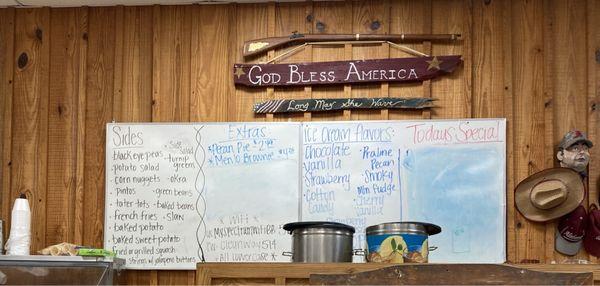 GOD BLESS AMERICA
LONG MAY SHE WAVE
Sides
black eye peas
potato salad
corn nuggets
pintos
tater tots
french fries
baked potato
baked sweet potato
fried or grilled squash
strings w/ jalapeno
Side Salad
turnip greens
okra
green beans
baked beans
slaw
Extras
Pecan Pie
Brownie
Ice Cream Flavors
Chocolate
Vanilla
Strawberry
Cotton Candy
Praline Pecan
Smoky Mtn fudge
Cherry Vanilla
Today's Special
WIFI
ALL lowercase